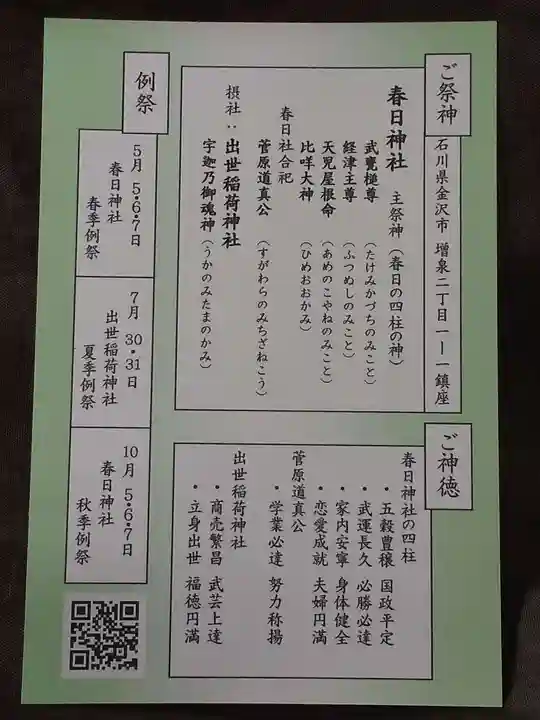 ご祭神
石川県金沢市 増泉二丁目一ー一鎮座
春日神社 主祭神(春日の四柱の神)
武甕槌尊(たけみかづちのみこと)
経津主尊(ふつぬしのみこと)
天児屋根命(あめのこやねのみこと)
比咩大神(ひめおおかみ)
春日社合祀
菅原道真公(すがわらのみちざねこう)
摂社:出世稲荷神社
宇迦乃御魂神(うかのみたまのかみ)
ご神徳
春日神社の四柱
・五穀豊穣 国政平定
・武運長久 必勝必達
・家内安寧 身体健全
・恋愛成就 夫婦円満
菅原道真公
・学業必達 努力称揚
出世稲荷神社
・商売繁昌 武芸上達
・立身出世 福徳円満
例祭
5月 5・6・7日
春日神社
春季例祭
7月 30・31日
出世稲荷神社
夏季例祭
10月 5・6・7日
春日神社
秋季例祭